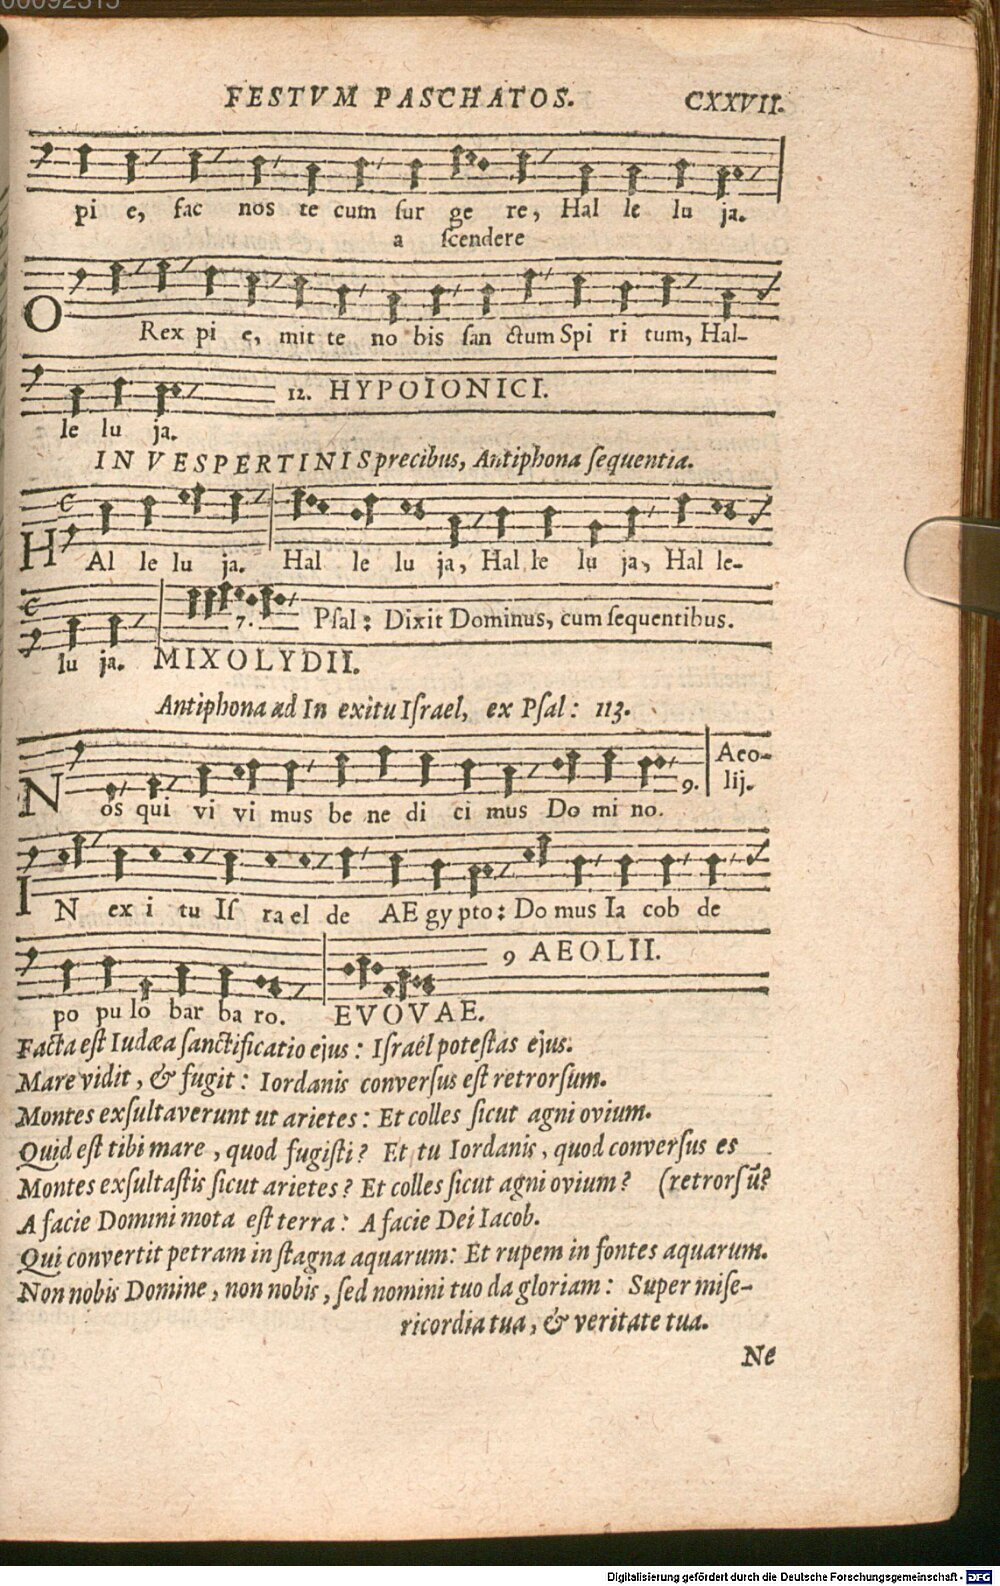 00092315
FESTVM PASCHATOS. CXXVII.
pi e, fac nos te cum ſur ge re, Hal le lu ja.
a ſcendere
O Rex pi e, mit te no bis ſan ctum Spi ri tum, Hal-
le lu ja. 12. HYPOIONICI.
IN VESPERTINIS precibus, Antiphona ſequentia.
HAl le lu ja. Hal le lu ja, Hal le lu ja, Hal le-
7. Pſal: Dixit Dominus, cum ſequentibus.
lu ja. MIXOLYDII.
Antiphona ad In exitu Iſrael, ex Pſal: 113.
9. Aeo-
lij.
Nos qui vi vi mus be ne di ci mus Do mi no.
IN ex i tu Iſ ra el de AE gy pto: Do mus Ia cob de
9 AEOLII.
po pu lo bar ba ro. EVOVAE.
Facta eſt Iudæa ſanctificatio ejus: Iſraél poteſtas ejus.
Mare vidit, & fugit: Iordanis converſus eſt retrorſum.
Montes exſultaverunt ut arietes: Et colles ſicut agni ovium.
Quid eſt tibi mare, quod fugiſti? Et tu Iordanis, quod converſus es
Montes exſultaſtis ſicut arietes? Et colles ſicut agni ovium? (retrorſũ?
A facie Domini mota eſt terra: A facie Dei Iacob.
Qui convertit petram in ſtagna aquarum: Et rupem in fontes aquarum.
Non nobis Domine, non nobis, ſed nomini tuo da gloriam: Super miſe-
ricordia tua, & veritate tua.
Ne
Digitalisierung gefördert durch die Deutsche Forschungsgemeinschaft - DFG